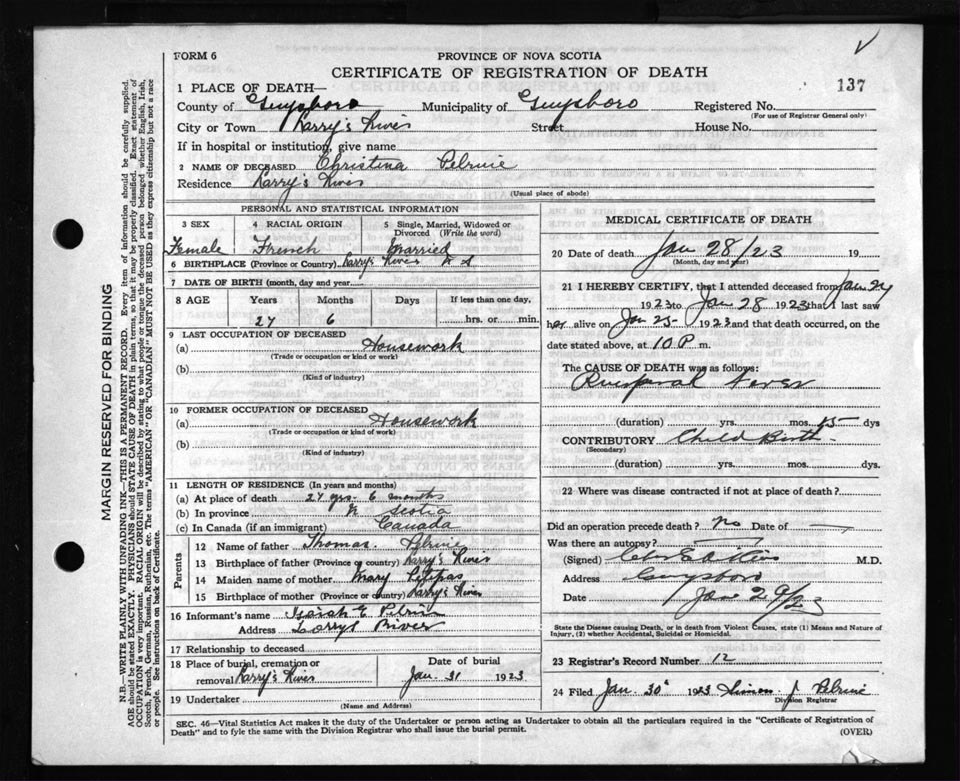 FORM 6
PROVINCE OF NOVA SCOTIA
CERTIFICATE OF REGISTRATION OF DEATH
137
1 PLACE OF DEATH—
County of Guysboro Municipality of Guysboro Registered No.
(For use of Registrar General only)
City or Town Larry's River Street House No.
If in hospital or institution, give name
2 NAME OF DECEASED Christina Pelrine
Residence Larry's River
(Usual place of abode)
PERSONAL AND STATISTICAL INFORMATION
3 SEX 4 RACIAL ORIGIN 5 Single, Married, Widowed or Divorced (Write the word)
Female French Married
6 BIRTHPLACE (Province or Country) Larry's River N S
7 DATE OF BIRTH (month, day and year)
8 AGE Years Months Days If less than one day,
27 6 hrs. or min.
9 LAST OCCUPATION OF DECEASED
(a) Housework
(Trade or occupation or kind of work)
(b)
(Kind of industry)
10 FORMER OCCUPATION OF DECEASED
(a) Housework
(Trade or occupation or kind of work)
(b)
(Kind of industry)
11 LENGTH OF RESIDENCE (In years and months)
(a) At place of death 27 yrs. 6 months
(b) In province N Scotia
(c) In Canada (if an immigrant) Canada
Parents
12 Name of father Thomas Pelrine
13 Birthplace of father (Province or country) Larry's River
14 Maiden name of mother Mary
15 Birthplace of mother (Province or country) Larry's River
16 Informant's name Isaiah E Pelrine
Address Larrys River
17 Relationship to deceased
18 Place of burial, cremation or removal Larry's River
Date of burial Jan. 31 1923
19 Undertaker
(Name and Address)
MEDICAL CERTIFICATE OF DEATH
20 Date of death Jan 28/23 19
(Month, day and year)
21 I HEREBY CERTIFY, that I attended deceased from Jan 24
1923 to Jan 28 1923 that I last saw
her alive on Jan 25 1923 and that death occurred, on the
date stated above, at 10 P m.
The CAUSE OF DEATH was as follows:
Puerperal Fever
(duration) yrs. mos. 15 dys
CONTRIBUTORY Child Birth
(Secondary)
(duration) yrs. mos. dys.
22 Where was disease contracted if not at place of death?
Did an operation precede death? no Date of
Was there an autopsy?
(Signed) M.D.
Address Guysboro
Date Jan 29/23
State the Disease causing Death, or in death from Violent Causes, state (1) Means and Nature of Injury, (2) whether Accidental, Suicidal or Homicidal.
23 Registrar's Record Number 12
24 Filed Jan 30 1923 Simon J Pelrine
Division Registrar
SEC. 46—Vital Statistics Act makes it the duty of the Undertaker or person acting as Undertaker to obtain all the particulars required in the "Certificate of Registration of Death" and to fyle the same with the Division Registrar who shall issue the burial permit.
(OVER)
MARGIN RESERVED FOR BINDING
N.B.—WRITE PLAINLY WITH UNFADING INK—THIS IS A PERMANENT RECORD. Every item of information should be carefully supplied.
AGE should be stated EXACTLY. PHYSICIANS should STATE CAUSE OF DEATH in plain terms, so that it may be properly classified. Exact statement of
OCCUPATION is very important. RACIAL ORIGIN will be described by stating to what people or tongue the deceased person belonged whether English, Irish,
Scotch, French, German, Russian, Ruthenian, etc. The terms "AMERICAN" OR "CANADIAN" MUST NOT BE USED as they express citizenship but not a race
or people. See instructions on back of Certificate.